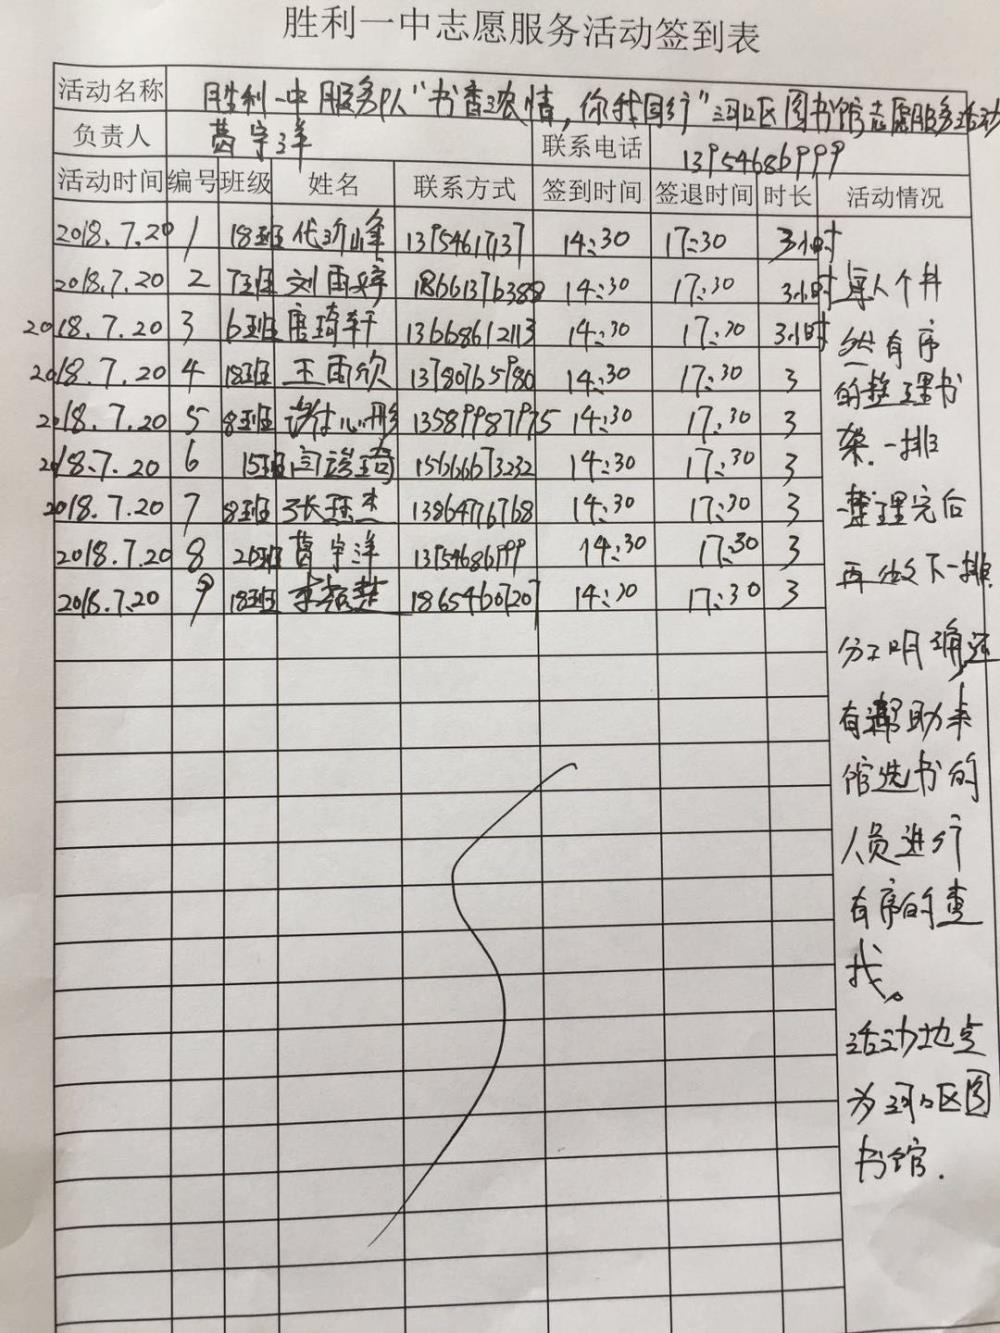 胜利一中志愿服务活动签到表
活动名称 胜利一中服务队“书香浓情，你我同行”河口区图书馆志愿服务活动
负责人 葛宇洋 联系电话 13954686999
活动时间 编号 班级 姓名 联系方式 签到时间 签退时间 时长 活动情况
2018.7.20 1 18班 代沂峰 13954617137 14:30 17:30 3小时
2018.7.20 2 7班 刘雨婷 18661376388 14:30 17:30 3小时
2018.7.20 3 6班 唐琦轩 13668612113 14:30 17:30 3小时
2018.7.20 4 18班 王雨欣 13780765780 14:30 17:30 3
2018.7.20 5 8班 心彤 13589987975 14:30 17:30 3
2018.7.20 6 15班 闫瑞琦 15666673232 14:30 17:30 3
2018.7.20 7 8班 张珏杰 13864776768 14:30 17:30 3
2018.7.20 8 20班 葛宇洋 13954686999 14:30 17:30 3
2018.7.20 9 18班 李 楚 18654607207 14:30 17:30 3
每人个井
然有序
的整理书
架.一排
整理完后
再做下一排.
分工明确还
有帮助来
馆选书的
人员进行
有序的查
找。
活动地点
为河口区图
书馆.